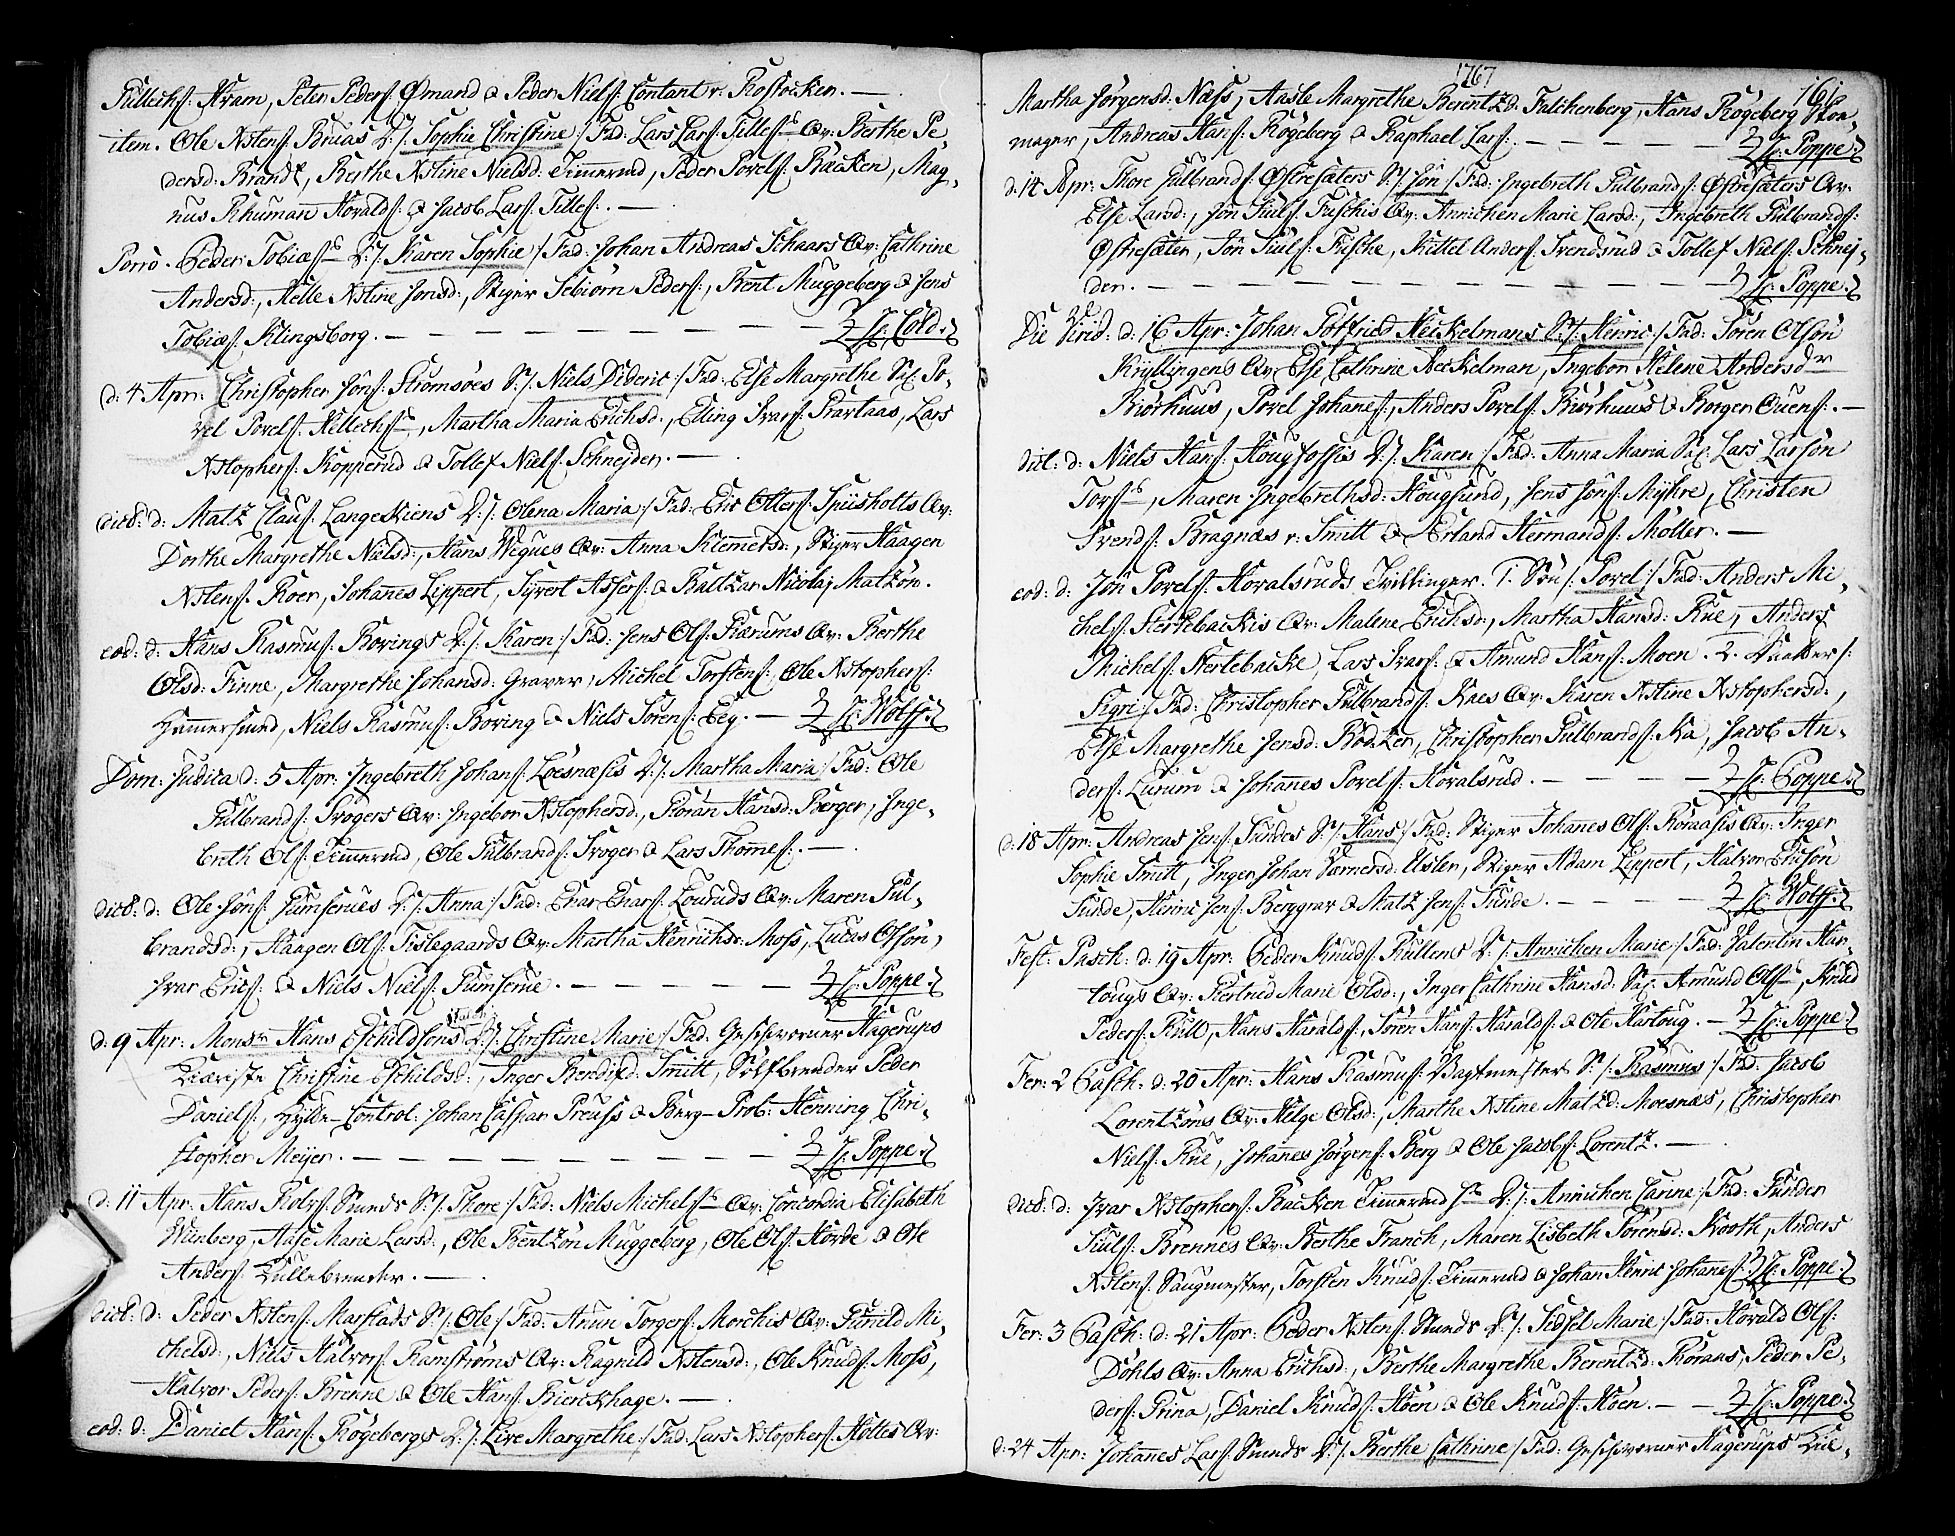 Gullechs: Kram, Peter Peders: Ømand & Peder Niels: Contant v: Rostocker. —
item. Ole Xstens: Bruas D:/: Sophie Christine :/ Fad: Lars Lars: Tilles: Qv: Berthe Pe-
dersd: Brandt, Berthe Xstine Nielsd: Timerud, Peder Povels: Bæcken, Mag-
nus Rhuman Hovalds: & Jacob Lars: Tilles: —
Porro. Peder Tobias: D:/: Karen Sophie :/ Fad: Johan Andreas Schaars Qv: Cathrine
Andersd:, Helle Xstine Jonsd:, Stiger Sebiørn Peders:, Bent Muggeberg & Jens
Tobias: Klingsborg. — — — — — — — — Hr: Cold.
d: 4 Apr: Christopher Jöns: Strømsøes S:/: Niels Dideric :/ Fad: Else Margrethe Sal: Po-
vel Povels: Kellechs:, Martha Maria Erichsd:, Elling Ivars: Prartaas, Lars
Xstophers: Kopperud & Tollef Niels: Schnejder. —
dict: d: Matz Claus: Langeskiens D:/: Olena Maria :/ Fad: Eric Otters: Spiisholts Qv:
Dorthe Margrethe Nielsd:, Hans Wegnes Qv: Anna Klemetsd:, Stiger Haagen
Xstens: Roer, Johannes Lippert, Syvert Assers: & Baltzar Nicolaj Matzön.
eod: d: Hans Rasmus: Bovings D:/: Karen :/ Fad: Jens Ols: Bærums Qv: Berthe
Olsd: Finne, Margrethe Johansd: Graver, Michel Torstens:, Ole Xstophers:
Hammersund, Niels Rasmus: Boving & Niels Sörens: Eeg. — Hr: Wolff.
Dom: Judica d: 5 Apr: Ingebreth Johans: Löesnæsis D:/: Martha Maria :/ Fad: Ole
Gulbrands: Trogers Qv: Ingebor Xstophersd:, Goran Hansd: Berger, Inge-
breth Ols: Timerud, Ole Gulbrands: Troger & Lars Thomes: —
dict: d: Ole Jöns: Gumserues D:/: Anna :/ Fad: Enar Enars: Louruds Qv: Maren Gul-
brandsd:, Haagen Ols: Tislegaards Qv: Martha Henrichsd: Moss, Lucas Olsön,
Ivar Erics: & Niels Niels: Gumserue. — — — — — — Hr: Poppe.
d: 9 Apr: Monsr Hans Eschildsöns D:/: Christine Marie :/ Fad: Geschworner Hagerups
Kiæriste Christine Eschildsd:, Inger Bendixd: Smitt, Sölfbrender Peder
Daniels:, Hytte-Control: Johan Casspar Preuss & Berg-Prob: Henning Chri-
stopher Meijer. — — — — — — — — — Hr: Poppe.
d: 11 Apr: Hans Rolvs: Stunds S:/: Thore :/ Fad: Niels Michels: Qv: Concordia Elisabeth
Winberg, Aase Marie Larsd:, Ole Bentzön Muggeberg, Ole Ols: Korde & Ole
Anders: Kullebrender. —
dict: d: Peder Xstens: Marstads S:/: Ole :/ Fad: Anun Torgers: Morchis Qv: Gunild Mi-
chelsd:, Niels Halvors: Ramströms Qv: Ragnild Xstensd:, Ole Knuds: Moss,
Halvor Peders: Brenne & Ole Hans: Bierckhage. —
eod: d: Daniel Hans: Rögebergs D:/: Live Margrethe :/ Fad: Lars Xstophers: Holtes Qv:
1767
161
Martha Jörgensd: Næss, Aasle Margrethe Berentzd: Falchenberg, Hans Rögeberg Skoe-
mager, Andreas Hans: Rögeberg & Raphael Lars: — — — — — Hr: Poppe.
d: 14 Apr: Thore Gulbrands: Østresæters S:/: Jön :/ Fad: Ingebreth Gulbrands: Østresæters Qv:
Else Larsd:, Jön Siuls: Fuschis Qv: Annichen Marie Larsd:, Ingebreth Gulbrands:
Østresæter, Jön Siuls: Fusche, Kittel Anders: Svendsrud & Tollef Niels: Schnej-
der. — — — — — — — — — Hr: Poppe.
Die Virid: d: 16 Apr: Johan Gottfried Heckelmans S:/: Henric :/ Fad: Sören Olsön
Kryllingens Qv: Else Cathrine Heckelman, Ingebor Helene Andersdr
Biörhuus, Povel Johanes:, Anders Povels: Biörhuus & Borger Ouens: —
dict: d: Niels Hans: Hougfossis D:/: Karen :/ Fad: Anna Maria Sal: Lars Larsön
Torss:, Maren Ingebrethsd: Hougsund, Jens Jöns: Mykre, Christen
Svends: Bragnæs v: Smitt & Erland Hermands: Möller. —
eod: d: Jön Povels: Hovalsruds Tvillinger. 1. Sön /: Povel :/ Fad: Anders Mi-
chels: Hertebackis Qv: Malene Erichsd:, Martha Hansd: Rue, Anders
Michels: Hertebacke, Lars Ivars: & Amund Hans: Moen. 2. Datter /:
Sigri :/ Fad: Christopher Gulbrands: Knes Qv: Karen Xstine Xstophersd:,
Else Margrethe Jensd: Bödcker, Christopher Gulbrands: Ka, Jacob An-
ders: Lurum & Johannes Povels: Hovalsrud. — — — — Hr: Poppe.
d: 18 Apr: Andreas Jens: Fundes S:/: Hans :/ Fad: Stiger Johanes Ols: Roraasis Qv: Inger
Sophie Smitt, Inger Johan Vernersd: Usler, Stiger Adam Lippert, Halvor Ericsön
Funde, Henric Jens: Berggrav & Matz Jens: Funde. — — — — Hr: Wolff.
Fest: Pasch: d: 19 Apr: Peder Knuds: Rullens D:/: Annichen Marie :/ Fad: Valentin Har-
tougs Qv: Giertrud Marie Olsd:, Inger Cathrine Hansd: Sal: Amund Ols:, Knud
Peders: Rull, Hans Haralds:, Sören Hans: Haralds: & Ole Hartoug. — Hr: Poppe.
Fer: 2 Pasch: d: 20 Apr: Hans Rasmus: Wagtmester S:/: Rasmus :/ Fad: Jacob
Lorentzöns Qv: Helge Olsd:, Marthe Xstine Matzd: Moesnæs, Christopher
Niels: Rue, Johanes Jörgens: Berg & Ole Jacobs: Lorentz. —
dict: d: Ivar Xstophers: Backen Timerud D:/: Annichen Carine :/ Fad: Gunder
Siuls: Brennes Qv: Berthe Franch, Maren Lisbeth Sörensd: Krooth, Anders
Xstens: Saugmester, Torsten Knuds: Timerud & Johan Henric Johanes: Hr: Poppe.
Fer: 3 Pasch: d: 21 Apr: Peder Xstens: Stunds D:/: Sidsel Marie :/ Fad: Hovald Ols:
Döhls Qv: Anna Erichsd:, Berthe Margrethe Berentzd: Röraas, Peder Pe-
ders: Prina, Daniel Knuds: Höen & Ole Knuds: Höen. — — Hr: Poppe.
d: 24 Apr: Johanes Lars: Stunds D:/: Berthe Cathrine :/ Fad: Geschworner Hagerups Kiæ-